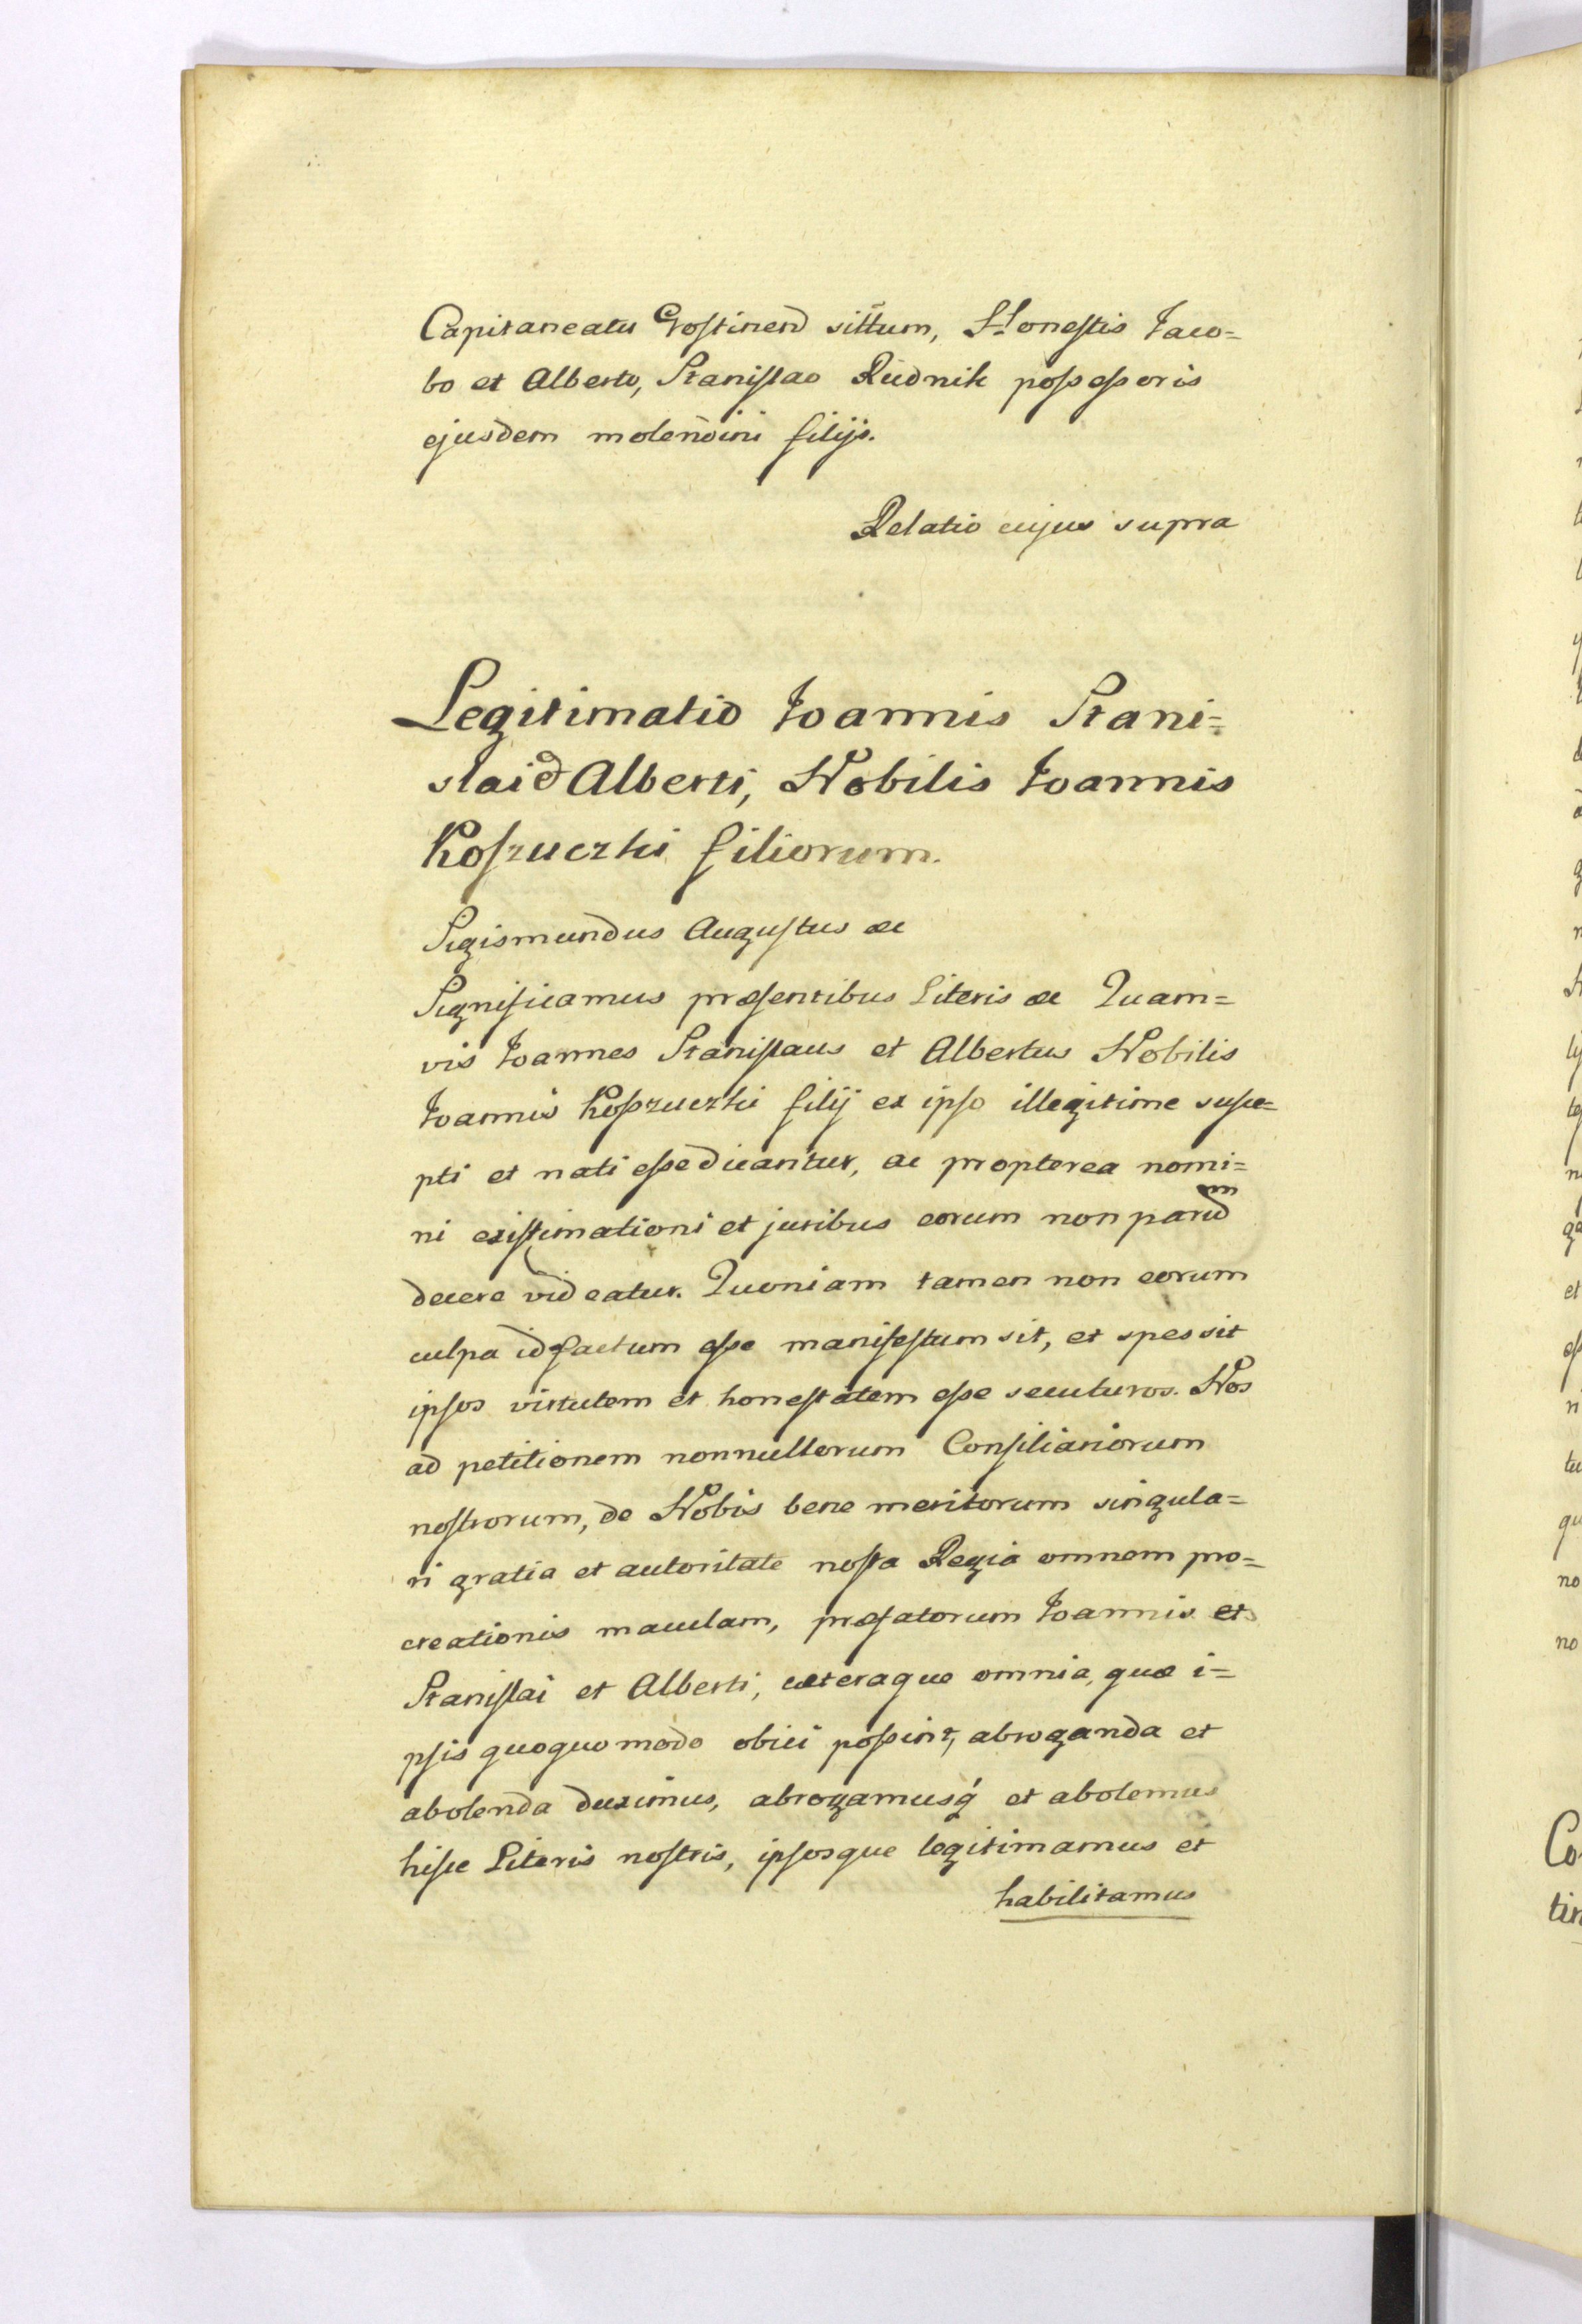 Capitaneatu Gostinend sittum, Honestis Jaco=
bo et Alberto, Stanislao Rudnik possessoris
ejusdem molendini filijs.
Relatio cujus supra
Legitimatio Joannis Stani=
slai & Alberti, Nobilis Joannis
Koszuczki filiorum.
Sigismundus Augustus &c
Significamus præsentibus Literis &c Quam=
vis Joannes Stanislaus et Albertus Nobilis
Joannis Koszuczki filij ex ipso illegitime susce=
pti et nati esse dicantur, ac propterea nomi=
ni existimationi et juribus eorum non parum
decere videatur. Quoniam tamen non eorum
culpa id factum esse manifestum sit, et spes sit
ipsos virtutem et honestatem esse secuturos. Nos
ad petitionem nonnullorum Consiliariorum
nostrorum, de Nobis bene meritorum singula=
ri gratia et autoritate nostra Regia omnem pro=
creationis maculam, præfatorum Joannis et
Stanislai et Alberti, cæteraque omnia, quæ i=
psis quoquo modo obici possint, abroganda et
abolenda duximus, abrogamusq́ et abolemus
hisce Literis nostris, ipsosque legitimamus et
habilitamus